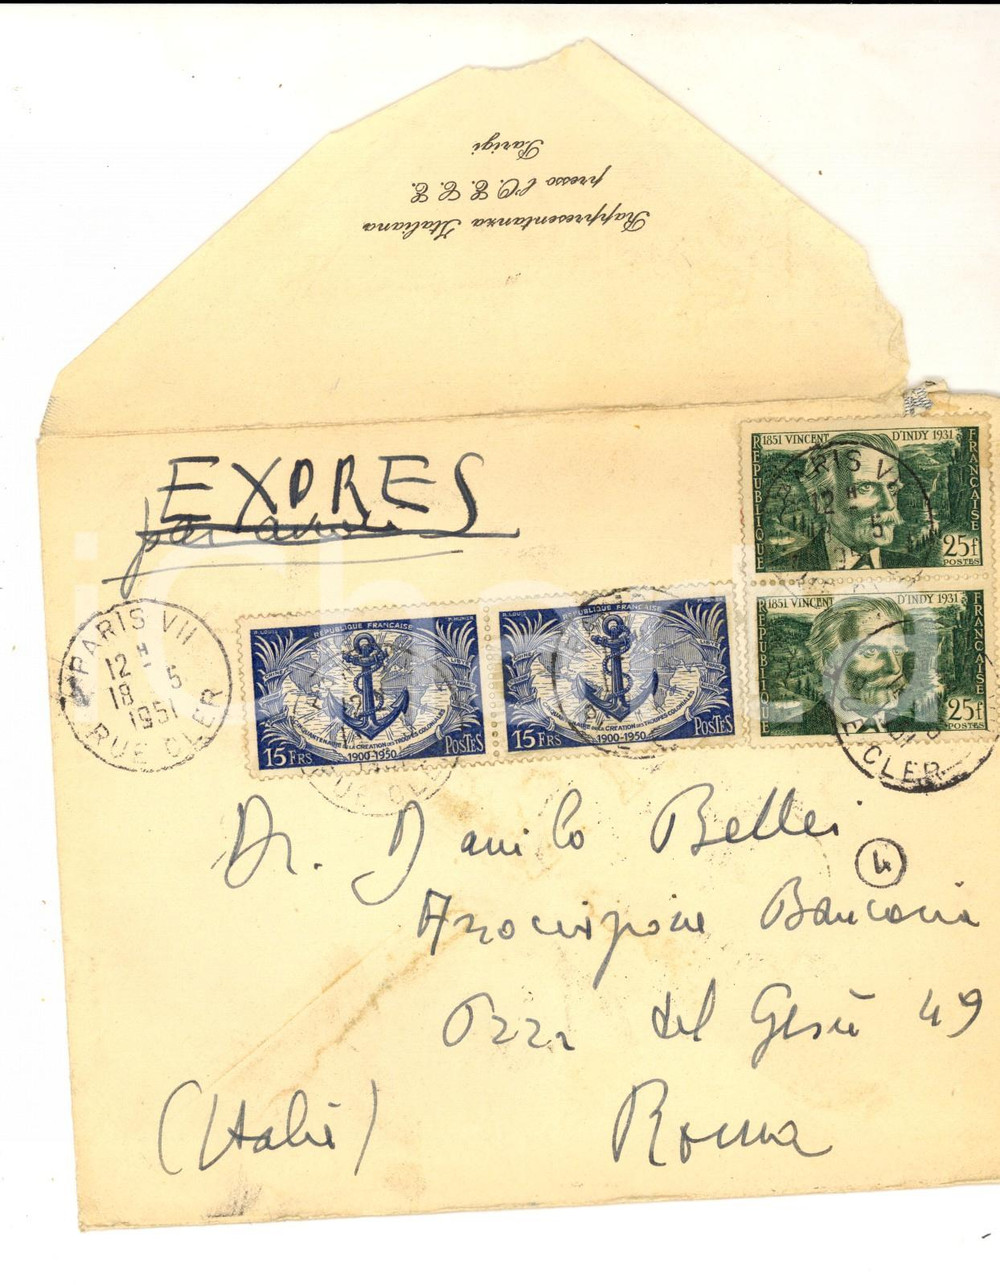 Rappresentanza Italiana
presso l'O. E. C. E.
Parigi
EXPRES
par avion
1851 VINCENT D'INDY 1931
REPUBLIQUE FRANÇAISE
25f
POSTES
1851 VINCENT D'INDY 1931
REPUBLIQUE FRANÇAISE
25f
POSTES
PARIS VII
12 H
18 5
1951
RUE CLER
REPUBLIQUE FRANÇAISE
CINQUANTENAIRE DE LA CREATION DES TROUPES COLONIALES
1900-1950
15 FRS
POSTES
REPUBLIQUE FRANÇAISE
CINQUANTENAIRE DE LA CREATION DES TROUPES COLONIALES
1900-1950
15 FRS
POSTES
Dr. Danilo Bellei
4
Associazione Bancaria
Pzza del Gesù 49
(Italie) Roma
iCharta